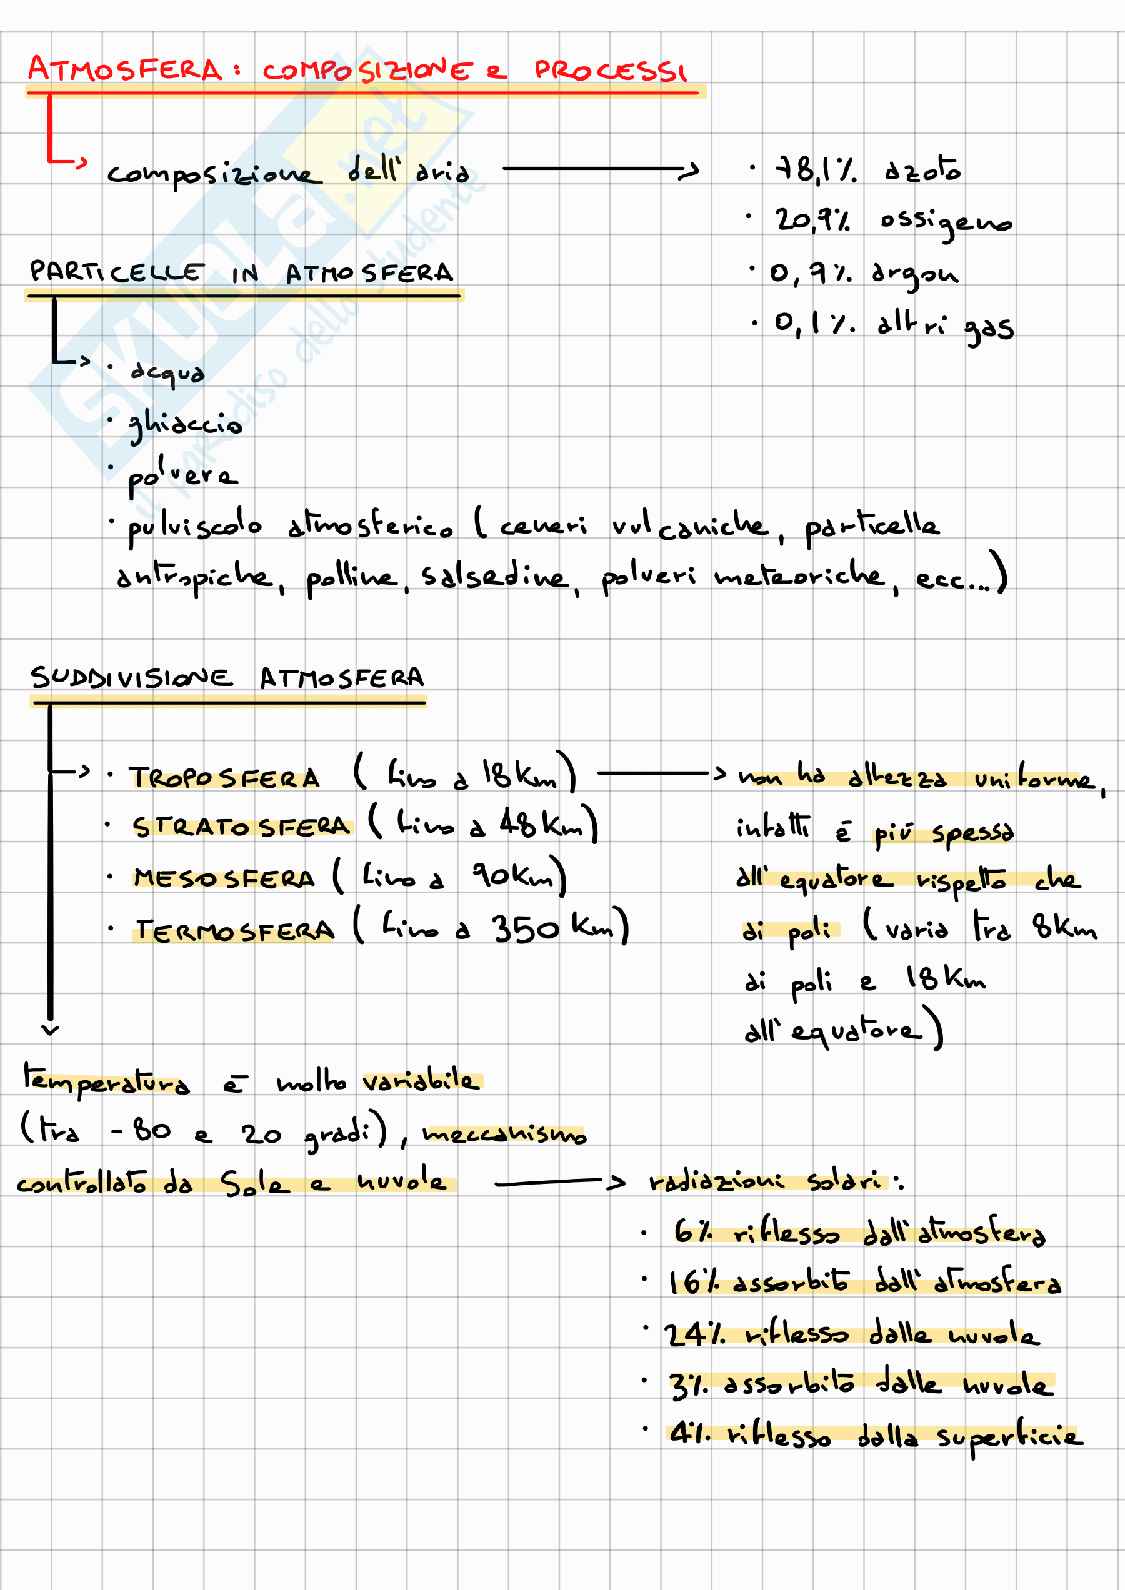 ATMOSFERA: COMPOSIZIONE e PROCESSI
composizione dell'aria
· 78,1% azoto
· 20,9% ossigeno
· 0,9% argon
· 0,1% altri gas
PARTICELLE IN ATMOSFERA
· acqua
· ghiaccio
· polvere
· pulviscolo atmosferico (ceneri vulcaniche, particelle
antropiche, polline, salsedine, polveri meteoriche, ecc...)
SUDDIVISIONE ATMOSFERA
· TROPOSFERA (fino a 18Km)
· STRATOSFERA (fino a 48Km)
· MESOSFERA (fino a 90Km)
· TERMOSFERA (fino a 350Km)
non ha altezza uniforme,
infatti è più spessa
all'equatore rispetto che
ai poli (varia tra 8Km
ai poli e 18Km
all'equatore)
temperatura è molto variabile
(tra -80 e 20 gradi), meccanismo
controllato da Sole e nuvole
radiazioni solari:
· 6% riflesso dall'atmosfera
· 16% assorbito dall'atmosfera
· 24% riflesso dalle nuvole
· 3% assorbito dalle nuvole
· 4% riflesso dalla superficie
SKUOLA.net
il paradiso dello studente